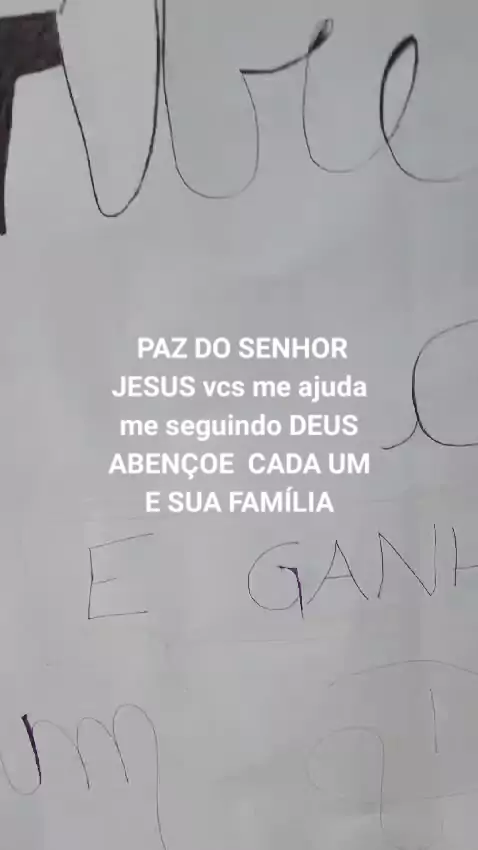 PAZ DO SENHOR
JESUS vcs me ajuda
me seguindo DEUS
ABENÇOE CADA UM
E SUA FAMÍLIA
E GANH
um